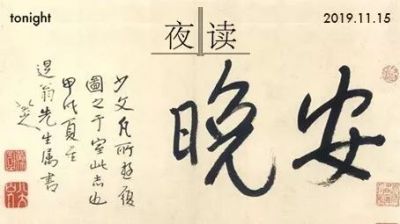 tonight
夜读
2019.11.15
晚安
少文凡所游履
圖之于室此志也
甲戌夏
退翁先生属書